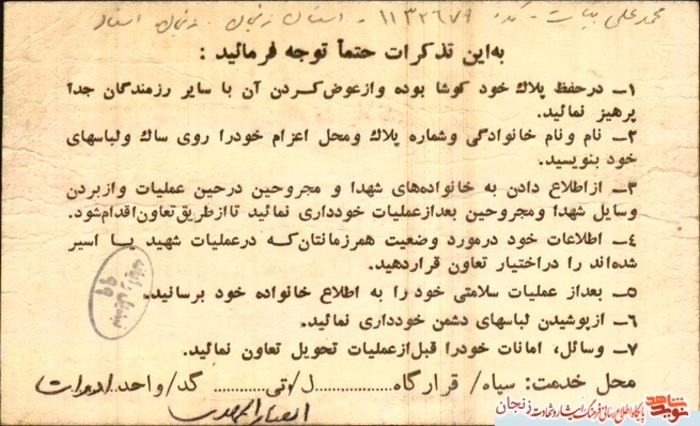 محمدعلی بیات - کد ۱۱۳۲۶۷۹ - استان زنجان. زنجان
به این تذکرات حتماً توجه فرمائید :
۱ـ درحفظ پلاك خود كوشا بوده وازعوض‌كردن آن با سایر رزمندگان جداً
پرهیز نمائید.
۲ـ نام ونام خانوادگی وشماره پلاك ومحل اعزام خودرا روی ساك ولباسهای
خود بنویسید.
۳ـ ازاطلاع دادن به خانواده‌های شهدا و مجروحین درحین عملیات وازبردن
وسایل شهدا ومجروحین بعدازعملیات خودداری نمائید تاازطریق تعاون‌اقدام‌شود.
٤ـ اطلاعات خود درمورد وضعیت همرزمانتان‌كه درعملیات شهید یـا اسیر
شده‌اند را دراختیار تعاون قراردهید.
۵ـ بعداز عملیات سلامتی خود را به اطلاع خانواده خود برسانید.
٦ـ ازپوشیدن لباسهای دشمن خودداری نمائید.
۷ـ وسائل، امانات خودرا قبل‌ازعملیات تحویل تعاون نمائید.
محل خدمت: سپاه/ قرارگاه................ل/تی............كد/واحد ادوات
انصارالمهدی
نوید شاهد
پایگاه اطلاع رسانی فرهنگ ایثار و شهادت زنجان